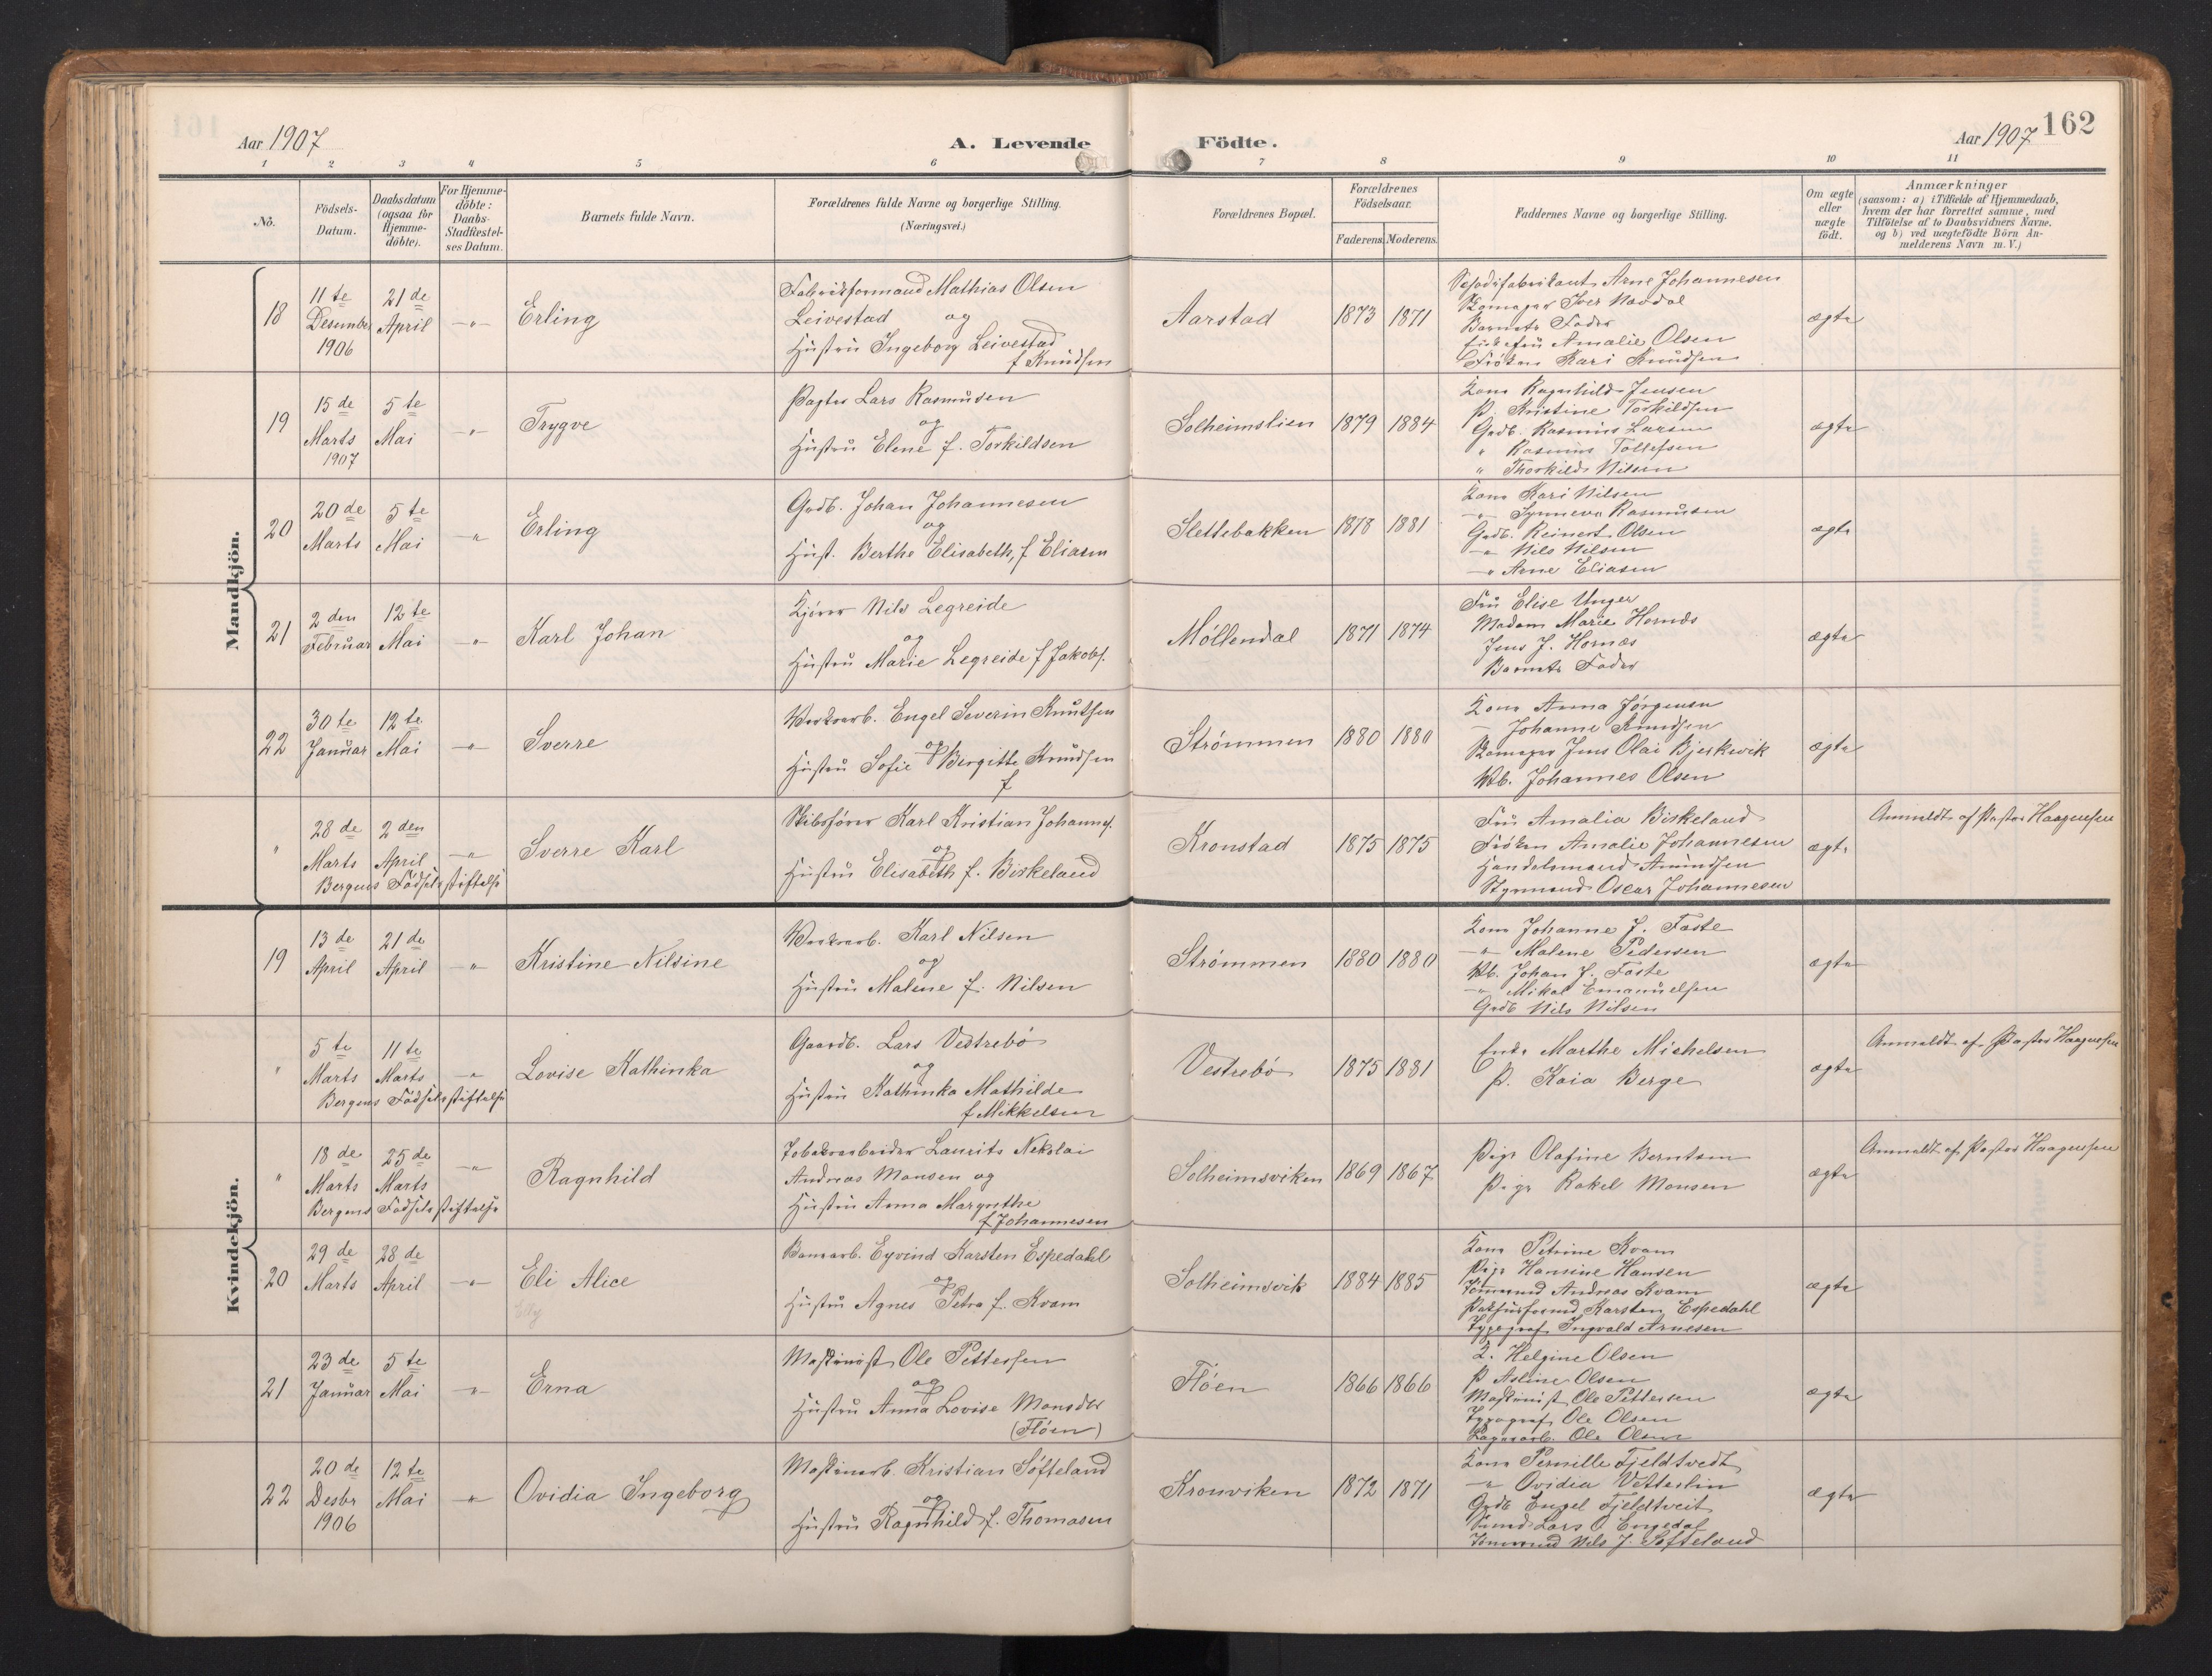 161
Aar 1907
A. Levende
Födte.
Aar 1907
162
1 2 3 4 5 6
7 8 9 10 11
No.
Födsels-Datum.
Daabsdatum (ogsaa for Hjemme-döbte).
For Hjemme-döbte: Daabs-Stadfæstel-ses Datum.
Barnets fulde Navn.
Forældrenes fulde Navne og borgerlige Stilling.
(Næringsvei.)
Forældrenes Bopæl.
Forældrenes Födselsaar.
Faderens. Moderens.
Faddernes Navne og borgerlige Stilling.
Om ægte eller uægte födt.
Anmærkninger
(saasom: a) i Tilfælde af Hjemmedaab,
hvem der har forrettet samme, med
Tilföielse af to Daabsvidners Navne.
og b) ved uægtefödte Börn An-
melderens Navn m. V.)
Mandkjön.
18
11te Desember 1906
21de April
-"-
Erling
Fabrikformand Mathias Olsen
Leivestad og
Hustru Ingeborg Leivestad
f Knudsen
Aarstad
1873 1871
Arne Johannesen
Iver Navdal
Barnets Fader
Amalie Olsen
Frøken Kari Knudsen
ægte
19
15de Marts 1907
5te Mai
-"-
Trygve
Pagter Lars Rasmusen
og
Hustru Elene f. Torkildsen
Solheimslien
1879 1884
Kone Ragnhild Jensen
P. Kristine Torkildsen
Grdb. Rasmus Larsen
" Rasmus Tollefsen
" Thorkild Nilsen
ægte
20
20de Marts
5te Mai
-"-
Erling
Grdb. Johan Johannesen
og
Hust. Berthe Elisabeth, f Eliasen
Slettebakken
1878 1881
Kone Kari Nilsen
-"- Synneva Rasmusen
Grdb. Reinert Olsen
-"- Nils Nilsen
-"- Arne Eliasen
ægte
21
2den Februar
12te Mai
-"-
Karl Johan
Kjører Nils Legreide
og
Hustru Marie Legreide f Jakobs.
Möllendal
1871 1874
Fru Elise Unger
Madam Marie Hornæs
Jens J. Hornæs
Barnets Fader
ægte
22
30te Januar
12te Mai
-"-
Sverre
Verksarb. Engel Severin Knutsen
og
Hustru Sofie Birgitte Knudsen
f
Strømmen
1880 1880
Kone Anna Jørgensen
- Johanne Knudsen
Skomager Jens Olai Bjerkvik
Vb. Johannes Olsen
ægte
"
28de Marts
2den April
-"-
Bergens Fødselsstiftelse
Sverre Karl
Skibsfører Karl Kristian Johannes.
og
Hustru Elisabeth f. Birkeland
Kronstad
1875 1875
Fru Amalia Birkeland
Frøken Amalie Johannesen
Handelsmand Amundsen
Styrmand Oscar Johannesen
ægte
Anmeldt af Pastor Haagensen
Kvindekjön.
19
13de April
21de April
-"-
Kristine Nilsine
Verksarb. Karl Nilsen
og
Hustru Malene f. Nilsen
Strømmen
1880 1880
Kone Johanne J. Faste
-"- Malene Pedersen
Vb. Johan J. Faste
-"- Mikal Emanuelsen
Grdb Nils Nilsen
ægte
"
5te Marts
11te Marts
-"-
Bergens Fødselsstiftelse
Lovise Kathinka
Gaardb. Lars Vestrebö
og
Hustru Kathinka Mathilde
f Mikkelsen
Vestrebö
1875 1881
Enke Marthe Michelsen
P. Kaia Berge
ægte
Anmeldt af Pastor Haagensen
"
18de Marts
25de Marts
-"-
Bergens Fødselsstiftelse
Ragnhild
Tobaksarbeider Laurits Nikolai
Andreas Monsen og
Hustru Anna Margrethe
f Johannesen
Solheimsviken
1869 1867
Pige Olafine Berntsen
Pige Rakel Monsen
ægte
Anmeldt af Pastor Haagensen
20
29de Marts
28de April
-"-
Eli Alice
Elly
Eyvind Karsten Espedahl
og
Hustru Agnes Petra f. Kvam
Solheimsvik
1884 1885
Kone Petrine Kvam
Pige Hansine Hansen
Tømmermd Andreas Kvam
Pakhusformd Karsten Espedahl
Typograf Ingvald Arnesen
ægte
21
23de Januar
5te Mai
-"-
Erna
Maskinist Ole Pettersen
og
Hustru Anna Lovise Monsdtr
(Flöen)
Flöen
1866 1866
K. Helgine Olsen
P Asline Olsen
Maskinist Ole Pettersen
Typograf Ole Olsen
Lagerarb. Ole Olsen
ægte
22
20de Desbr 1906
12te Mai
-"-
Ovidia Ingeborg
Maskinarb. Kristian Söfteland
og
Hustru Ragnhild f. Thomasen
Kronviken
1872 1871
Kone Pernille Fjeldtvedt
-"- Ovidia Vetterlin
Grdb Engel Fjeldtveit
Lars O. Engedal
Tømmermd Nils J. Søfteland
ægte